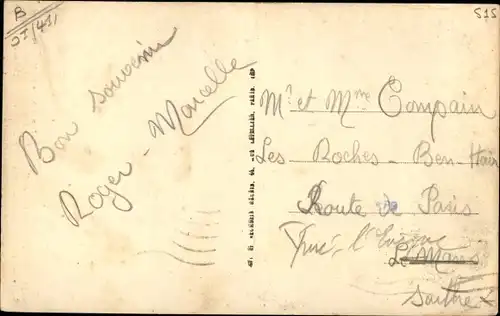 B
515
Bon souvenir
Roger - Marcelle
Mr et Mme Compain
Les Roches - Ben-Hain
Route de Paris
Yvré-l'Evêque
Le Mans
Sarthe